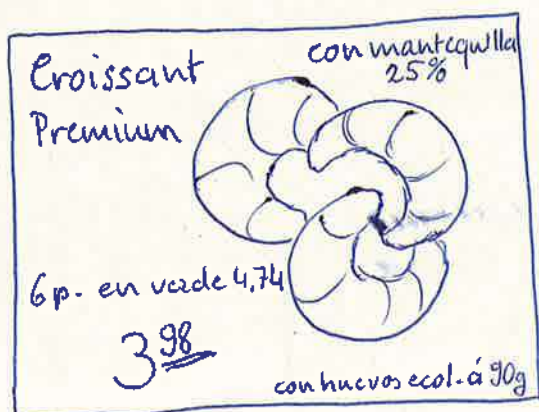 Croissant
Premium
con mantequilla
25%
6 p. en vez de 4,74
3 98
con huevos ecol. á 90g